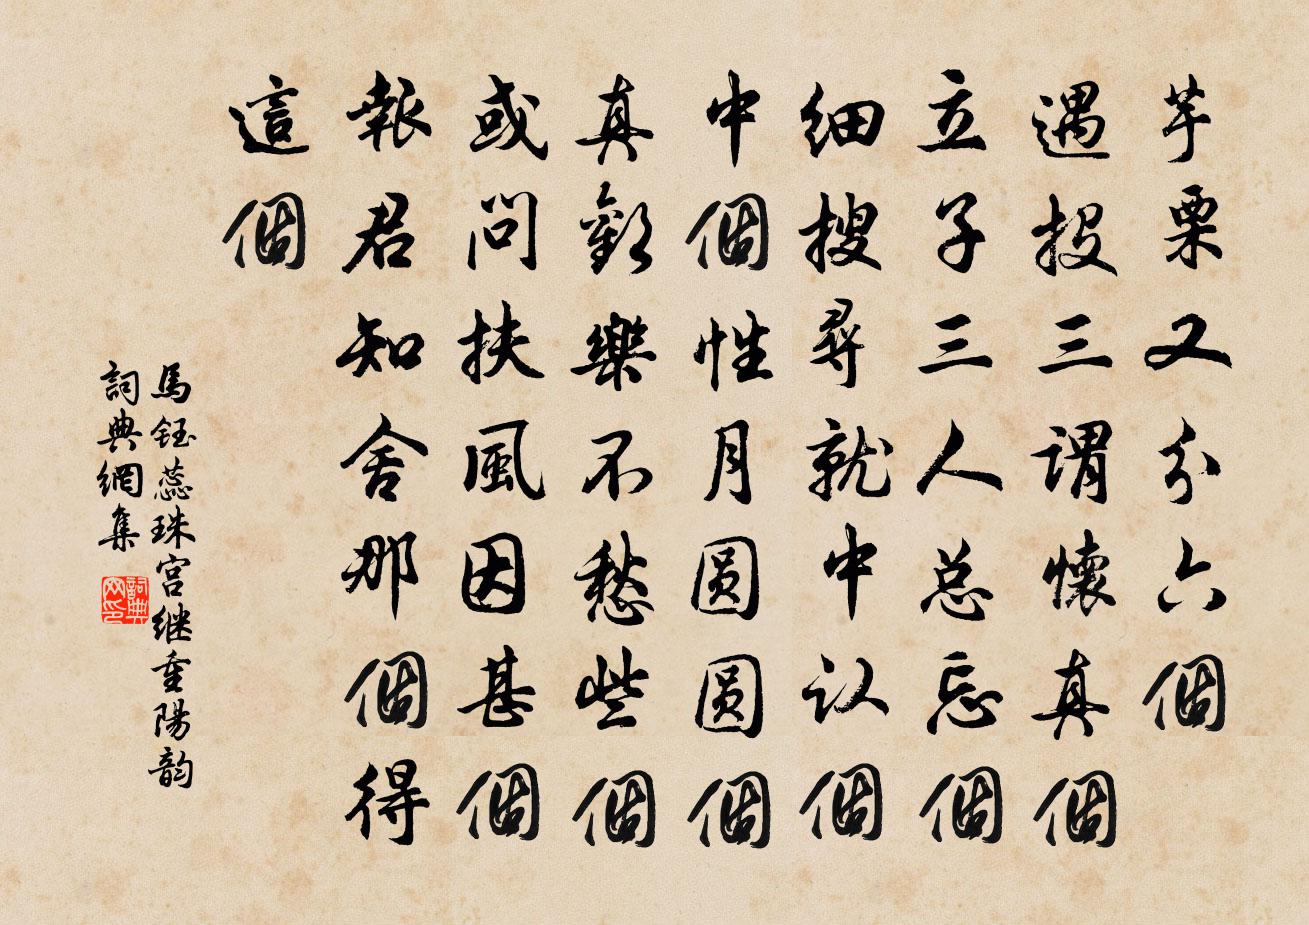 芋栗又分六個
遇投三三謂懷真個
立子三人总忘個
细搜尋就中认個
中個性月圆圆個
真歡樂不愁些個
或问扶風因甚個
報君知舍那個得
這個
馬鈺蕊珠宫继重陽韵
詞典網集
詞典网印